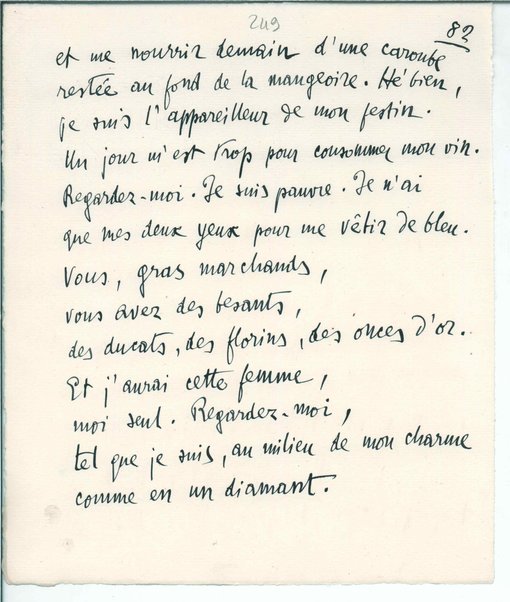 249
82
et me nourrir demain d'une caroube
restée au fond de la mangeoire. Hé bien,
je suis l'appareilleur de mon festin.
Un jour m'est trop pour consommer mon vin.
Regardez-moi. Je suis pauvre. Je n'ai
que mes deux yeux pour me vêtir de bleu.
Vous, gras marchands,
vous avez des besants,
des ducats, des florins, des onces d'or.
Et j'aurai cette femme,
moi seul. Regardez-moi,
tel que je suis, au milieu de mon charme
comme en un diamant.